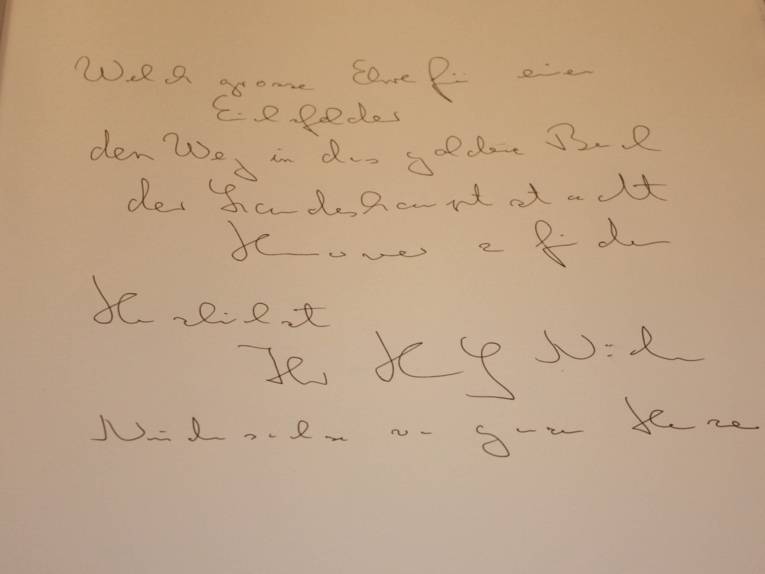 Welch grosse Ehre für einen
Eichsfelder
den Weg in das goldene Buch
der Landeshauptstadt
Hannover zu finden
Herzlichst
Ihr
Niedersachse von ganzem Herzen